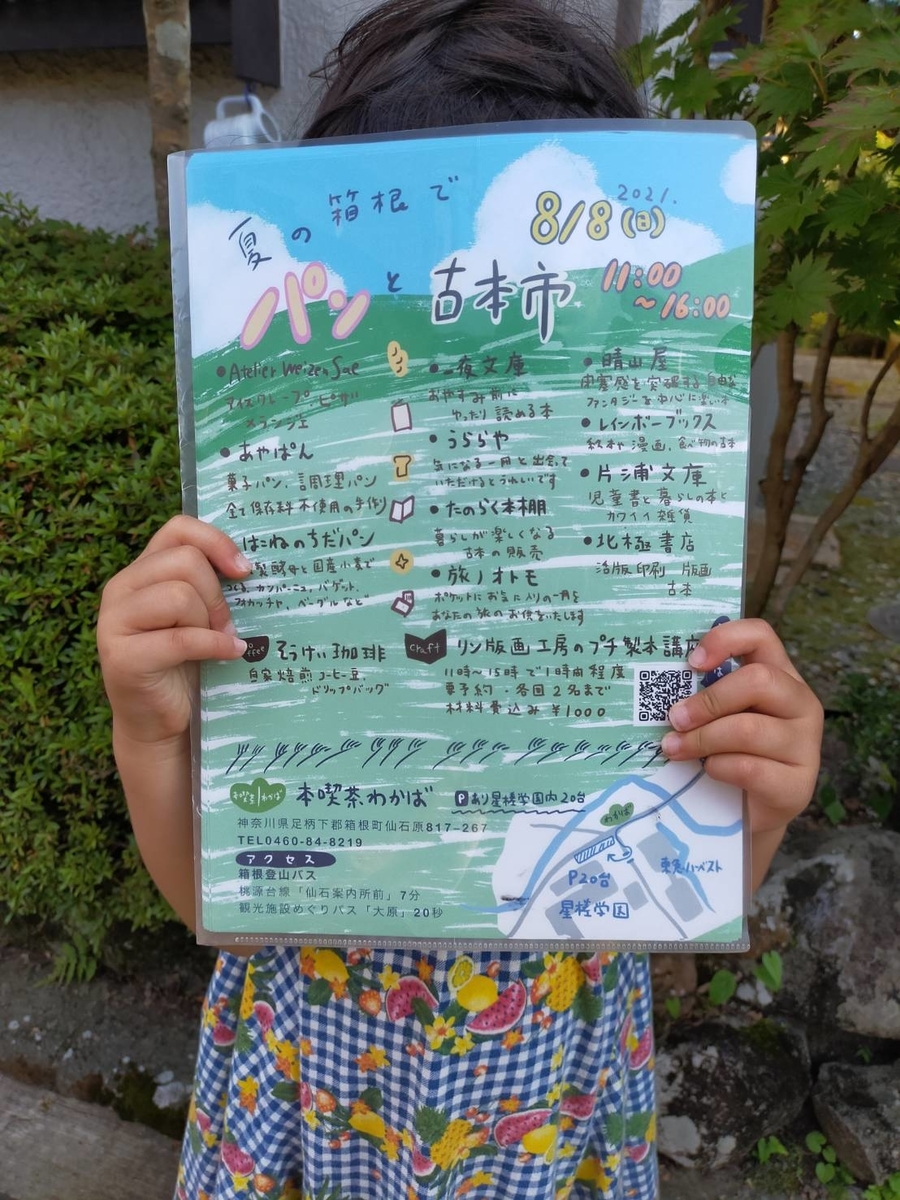 夏の箱根で
パンと古本市
2021.
8/8(日)
11:00
~16:00
・Atelier Weizen Sae
アイスクレープ、ピザ
メランジェ
・あやぱん
菓子パン、調理パン
全て保存料不使用の手作り
はこねのちだパン
製酵母と国産小麦で
つくる、カンパーニュ、バゲット、
フォカッチャ、ベーグルなど
・一夜文庫
おやすみ前に
ゆったり読める本
・うららや
気になる一冊と出会って
いただけるとうれしいです
・たのらく本棚
暮らしが楽しくなる
古本の販売
・旅ノオトモ
ポケットにお気に入りの一冊を
あなたの旅のお供をいたします
・晴山屋
閉塞感を突破する自由な
ファンタジーを中心に楽しい本
・レインボーブックス
絵本や漫画、食べ物の古本
・片浦文庫
児童書と暮らしの本と
カワイイ雑貨
・北極書店
活版印刷 版画
古本
珈琲
自家焙煎コーヒー豆、
ドリップバッグ
craft
リン版画工房のプチ製本講座
11時~15時で1時間程度
要予約・各回2名まで
材料費込み¥1000
本喫茶わかば
Pあり星槎学園内20台
神奈川県足柄下郡箱根町仙石原817-267
TEL0460-84-8219
アクセス
箱根登山バス
桃源台線「仙石案内所前」7分
観光施設めぐりバス「大原」20秒
わかば
P20台
星槎学園
東急ハーベスト